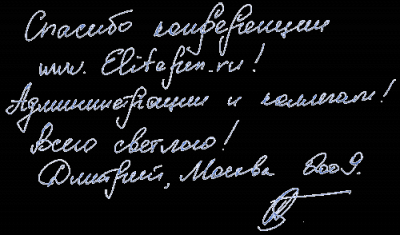 Спасибо конференции
www. Elitafun.ru!
Администрации и коллегам!
Всего светлого!
Дмитрий, Москва 2009.